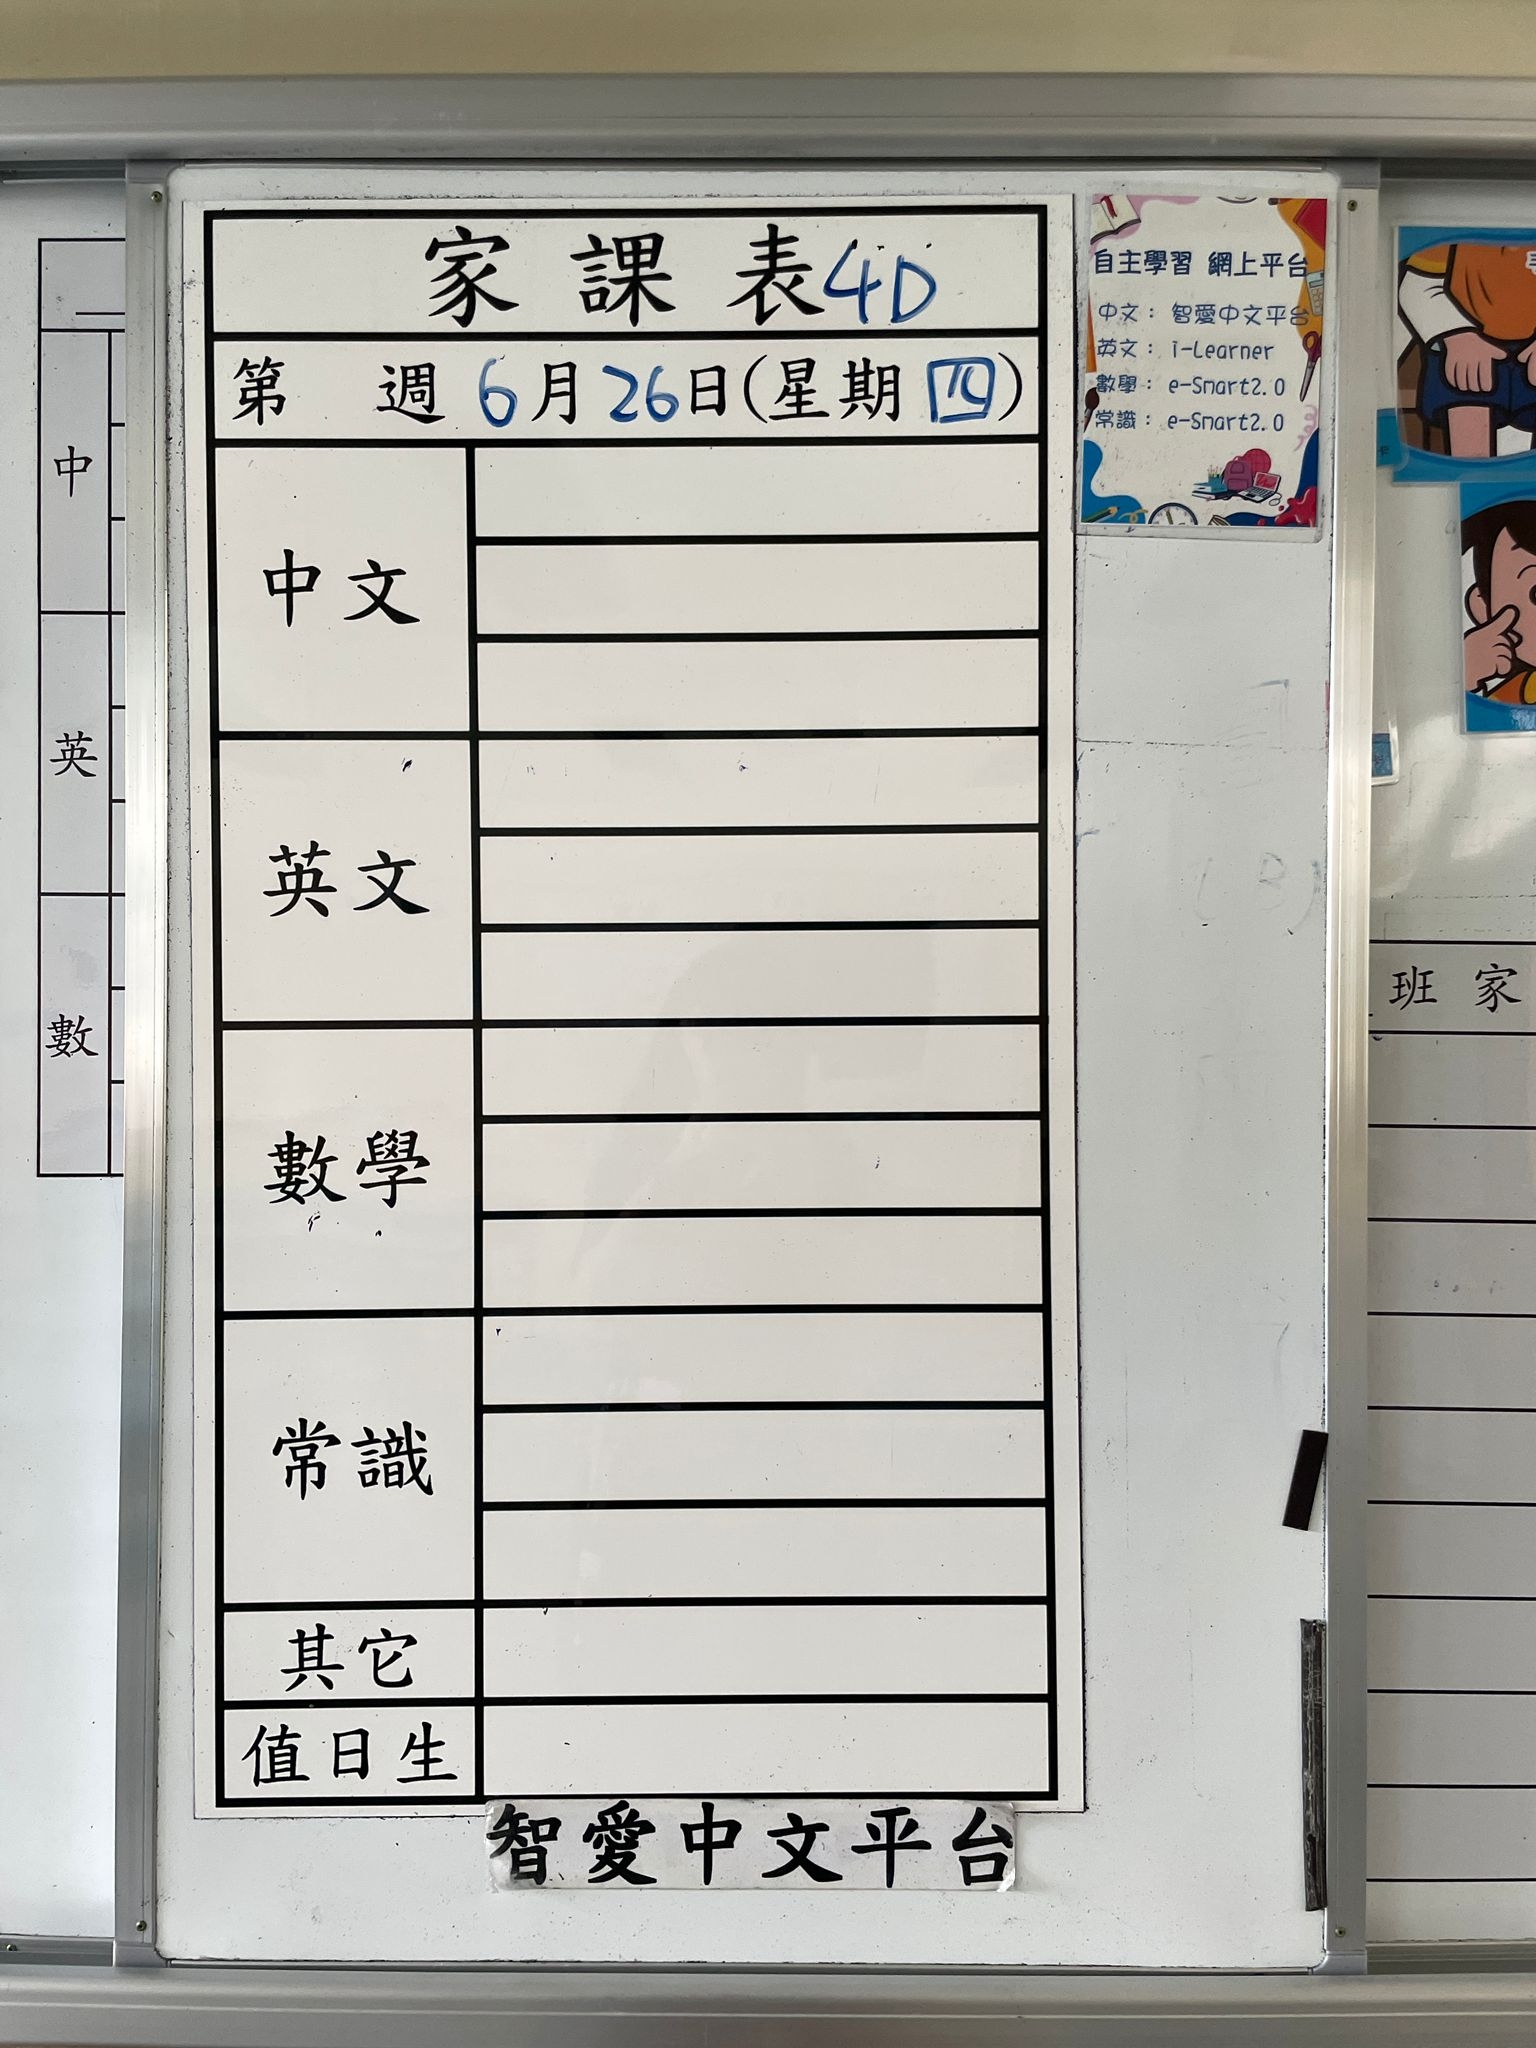 家課表4D
第 週 6月26日(星期四)
中文
英文
數學
常識
其它
值日生
智愛中文平台
自主學習 網上平台
中文： 智愛中文平台
英文： i-Learner
數學： e-Smart2.0
常識： e-Smart2.0
中
英
數
班家